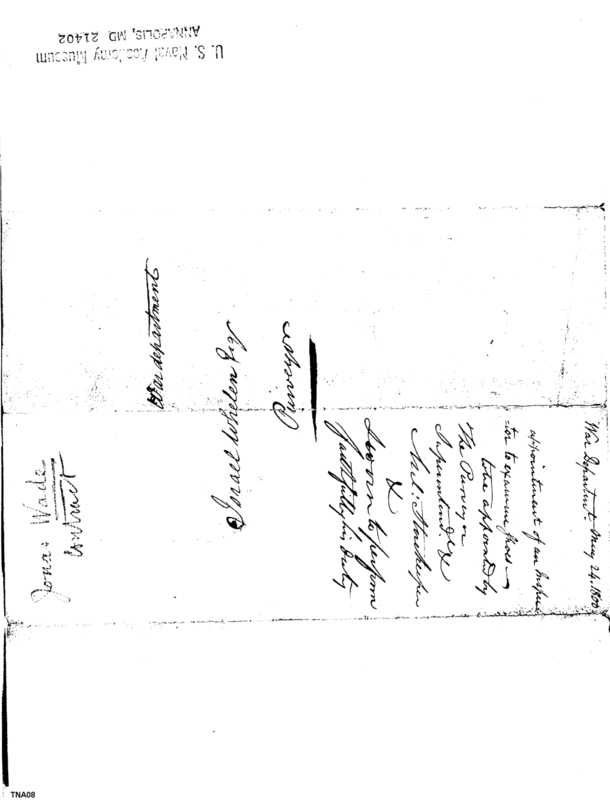 U. S. Naval Academy Museum
ANNAPOLIS, MD. 21402
War department
Israel Whelen Esq
Purveyor
War Department May 24. 1800
appointment of an Inspec
-tor to examine
to be appointed by
The Purveyor
Superintendt. &
Mil: Storekeeper
&
Sworn to perform
faithfully his duty
Jonas Wade
Contract
TNA08